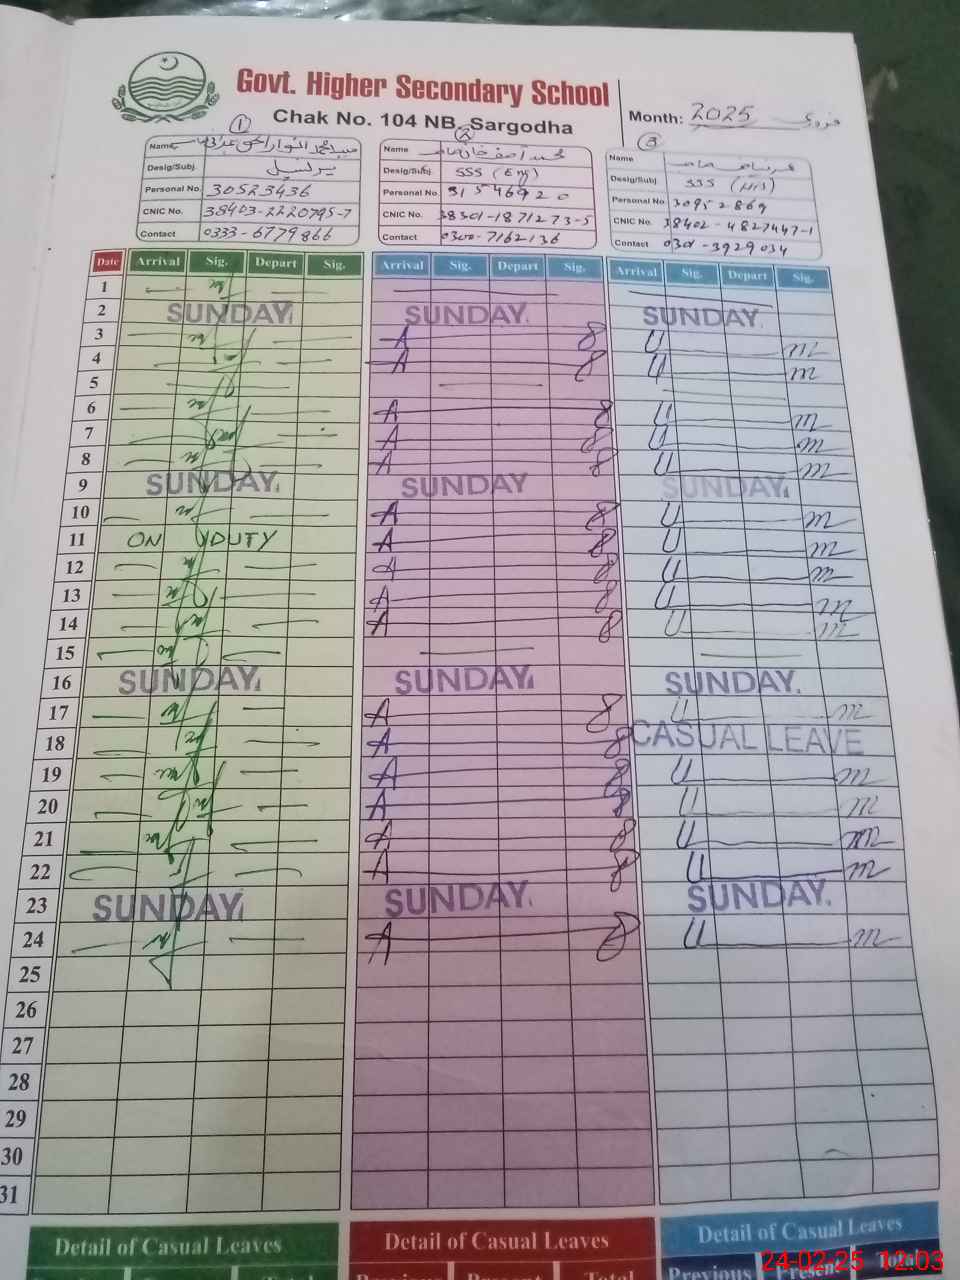 Govt. Higher Secondary School
Chak No. 104 NB, Sargodha
Month: 2025 فروری
1
Name
Desig/Subj. پرنسپل
Personal No. 30523436
CNIC No. 38403-2220795-7
Contact 0333-6779866
2
Name محمد آصف خان صاحب
Desig/Subj. SSS (Eng)
Personal No. 31546920
CNIC No. 38301-1871273-5
Contact 0300-7162136
3
Name
Desig/Subj. SSS (His)
Personal No. 30952869
CNIC No. 38402-4827447-1
Contact 0301-3929034
Date Arrival Sig. Depart Sig. Arrival Sig. Depart Sig. Arrival Sig. Depart Sig.
1
2 SUNDAY SUNDAY SUNDAY
3 A 8 U m
4 A 8 U m
5
6 A 8 U m
7 A 8 U m
8 A 8 U m
9 SUNDAY SUNDAY SUNDAY
10 A 8 U m
11 ON DUTY A 8 U m
12 A 8 U m
13 A 8 U m
14 A 8 U m
15
16 SUNDAY SUNDAY SUNDAY
17 A 8 U m
18 A 8 CASUAL LEAVE
19 A 8 U m
20 A 8 U m
21 A 8 U m
22 A 8 U m
23 SUNDAY SUNDAY SUNDAY
24 A 8 U m
25
26
27
28
29
30
31
Detail of Casual Leaves Detail of Casual Leaves Detail of Casual Leaves
Total Previous Present Total Previous Present Total
24-02-25 12:03